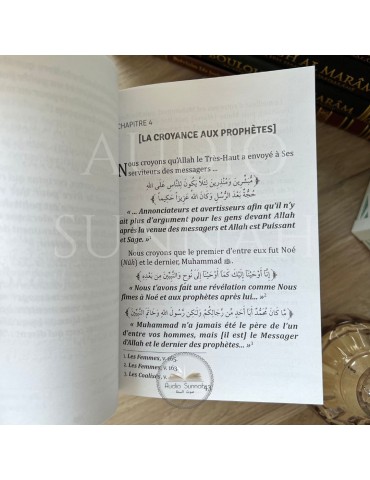 CHAPITRE 4
[LA CROYANCE AUX PROPHÈTES]
Nous croyons qu'Allah le Très-Haut a envoyé à Ses
serviteurs des messagers ...
﴿ مُبَشِّرِينَ وَمُنْذِرِينَ لِئَلَّا يَكُونَ لِلنَّاسِ عَلَى اللَّهِ
حُجَّةٌ بَعْدَ الرُّسُلِ وَكَانَ اللَّهُ عَزِيزاً حَكِيماً ﴾
« ... Annonciateurs et avertisseurs afin qu'il n'y
ait plus d'argument pour les gens devant Allah
après la venue des messagers et Allah est Puissant
et Sage. »1
Nous croyons que le premier d'entre eux fut Noé
(Nûh) et le dernier, Muhammad ﷺ.
﴿ إِنَّا أَوْحَيْنَا إِلَيْكَ كَمَا أَوْحَيْنَا إِلَى نُوحٍ وَالنَّبِيِّينَ مِنْ بَعْدِهِ ﴾
« Nous t'avons fait une révélation comme Nous
fîmes à Noé et aux prophètes après lui... »2
﴿ مَا كَانَ مُحَمَّدٌ أَبَا أَحَدٍ مِنْ رِجَالِكُمْ وَلَكِنْ رَسُولَ اللَّهِ وَخَاتَمَ النَّبِيِّينَ ﴾
« Muhammad n'a jamais été le père de l'un
d'entre vos hommes, mais [il est] le Messager
d'Allah et le dernier des prophètes... »3
1. Les Femmes, v. 165.
2. Les Femmes, v. 163.
3. Les Coalisés, v.
AUDIO
SUNNA
Audio Sunnah
MARÂM
AL MARÂM